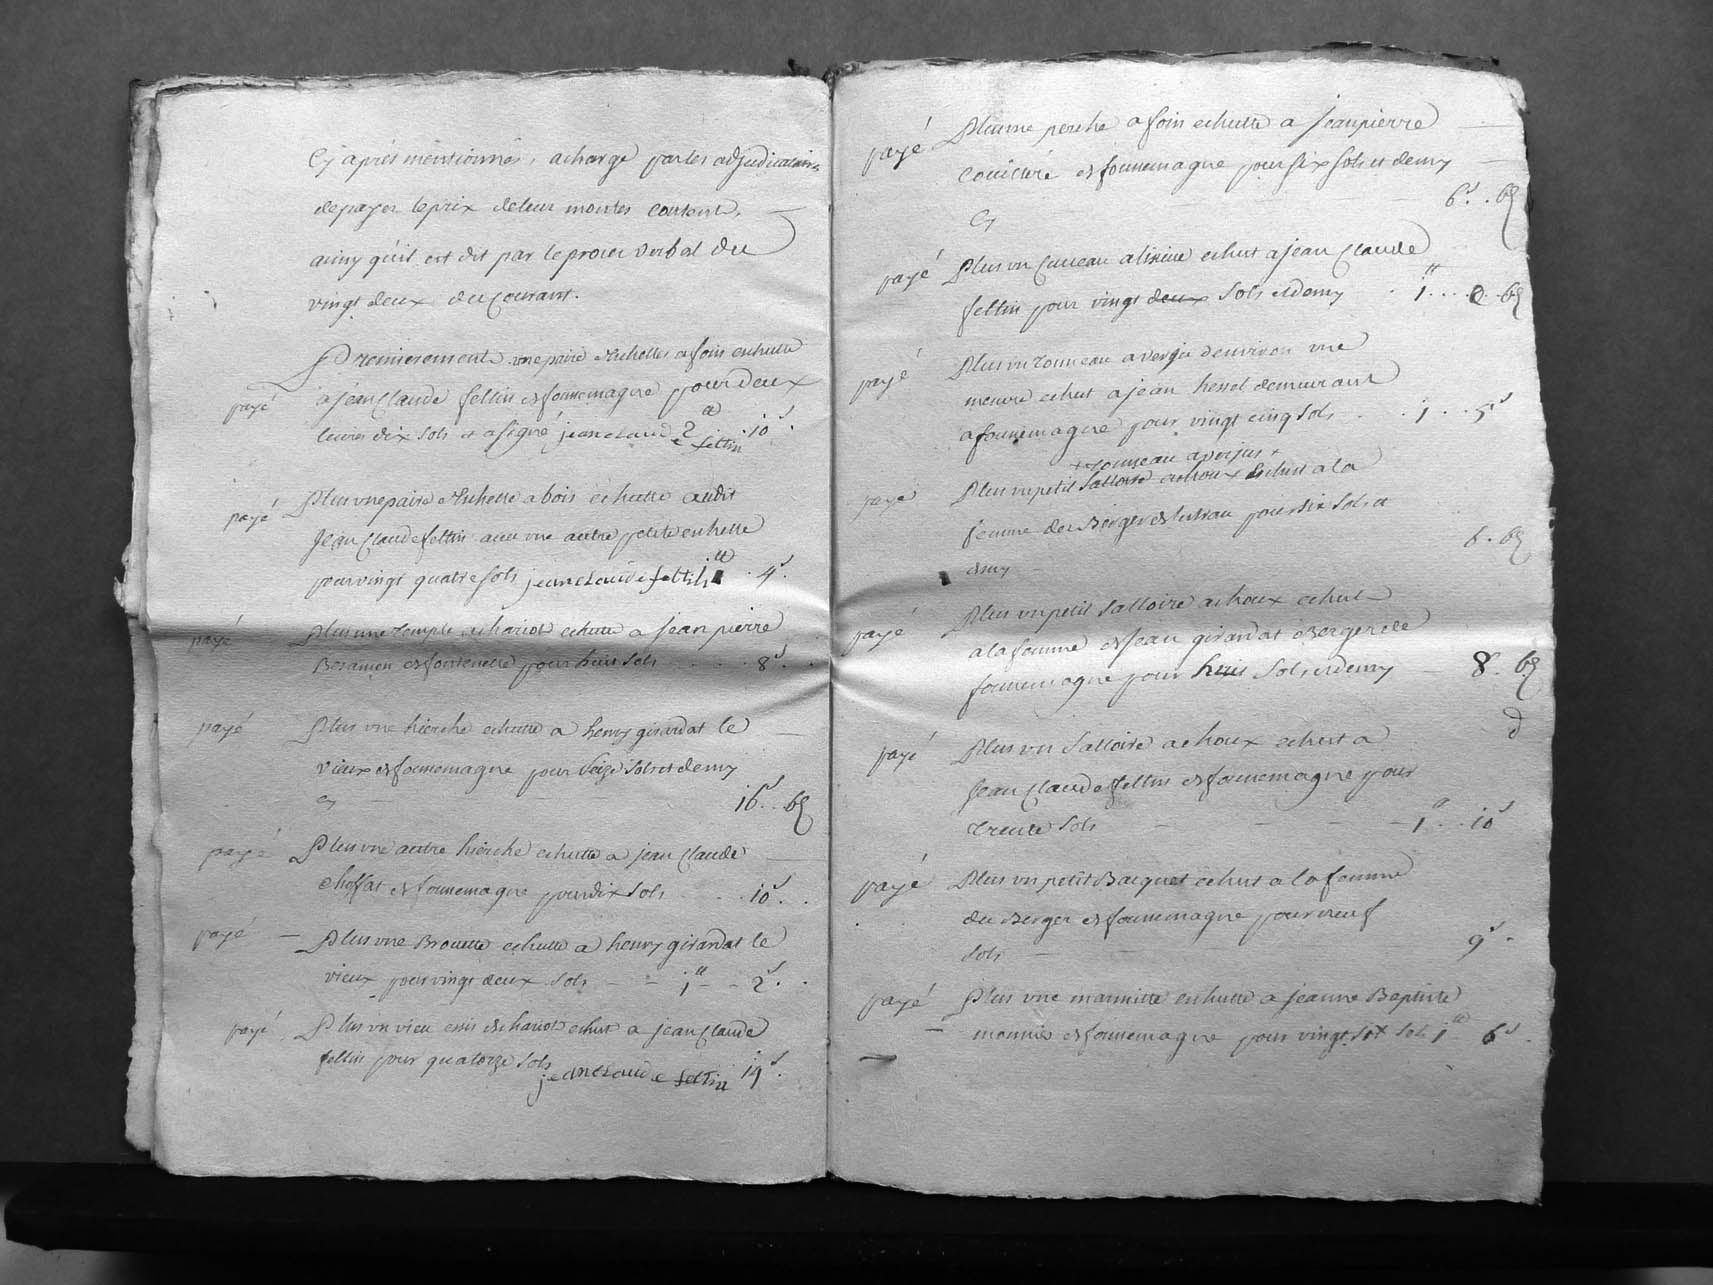 Cy aprés mentionnés, acharge par les adjudicataires
depayer leprix deleur montes contant,
ainsy qu'il est dit par leproces verbal du
vingt deux du Courant.
payé
Premierement une paire d'echelles a foin echutte
a jean Claude fettin de foussemagne pour deux
livres dix sols et a signé jean claude fettin 2 ₶ 10 s
payé
Plus une paire d'echelle a bois echutte audit
Jean Claude fettin avec une autre petite echelle
pour vingt quatre sols jean claude fettin 1 ₶ 4 s
payé
Plus une a chariot echutte a jean pierre
Besançon de fontenelle pour huit sols 8 s
payé
Plus une hierche echutte a henry girardat le
vieux de foussemagne pour seize sols et demy
Cy 16 s 6 d
payé
Plus une autre hierche echutte a jean Claude
choffat de foussemagne pour dix sols 10 s
payé
Plus une Brouette echutte a henry girardat le
vieux pour vingt deux sols 1 ₶ 2 s
payé
Plus un vieu de chariot echut a jean Claude
fettin pour quatorze sols
jean claude fettin 14 s
payé
Plus une perche a foin echutte a jean pierre
de foussemagne pour six sols et demy
Cy 6 s 6 d
payé
Plus un Cuveau a lixive echut a jean Claude
fettin pour vingt deux sols et demy 1 ₶ 0 6 d
payé
Plus un tonneau a verju d'environ une
mesure echut a jean hessel demeurant
a foussemagne pour vingt cinq sols 1 5 s
+ tonneau a verjus +
payé
Plus un petit sattoire a choux Echut a la
femme du Berger de pour six sols et
demy 6 6 d
payé
Plus un petit sattoire a choux echut
a la femme de Jean girardat Berger de
foussemagne pour huit sols et demy 8 s 6 d
payé
Plus un sattoire a choux echut a
Jean Claude fettin de foussemagne pour
trente sols 1 ₶ 10 s
payé
Plus un petit Bacquet echut a la femme
du Berger de foussemagne pour neuf
sols 9 s
payé
Plus une marmitte echutte a jeanne Baptiste
monnier de foussemagne pour vingt six sols 1 ₶ 6 s